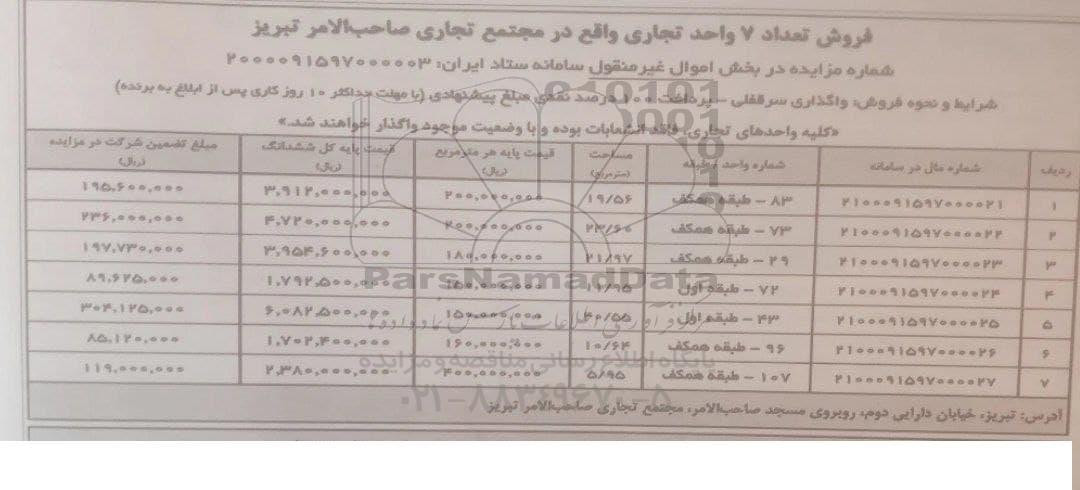 فروش تعداد ۷ واحد تجاری واقع در مجتمع تجاری صاحب‌الامر تبریز
شماره مزایده در بخش اموال غیرمنقول سامانه ستاد ایران: ۲۰۰۰۰۹۱۵۹۷۰۰۰۰۰۳
شرایط و نحوه فروش: واگذاری سرقفلی – پرداخت ۱۰۰ درصد نقدی مبلغ پیشنهادی (با مهلت حداکثر ۱۰ روز کاری پس از ابلاغ به برنده)
«کلیه واحدهای تجاری، فاقد انشعابات بوده و با وضعیت موجود واگذار خواهند شد.»
ردیف شماره مال در سامانه شماره واحد – طبقه مساحت (مترمربع) قیمت پایه هر مترمربع (ریال) قیمت پایه کل ششدانگ (ریال) مبلغ تضمین شرکت در مزایده (ریال)
۱ ۲۱۰۰۰۹۱۵۹۷۰۰۰۰۲۱ ۸۳ – طبقه همکف ۱۹/۵۶ ۲۰۰,۰۰۰,۰۰۰ ۳,۹۱۲,۰۰۰,۰۰۰ ۱۹۵,۶۰۰,۰۰۰
۲ ۲۱۰۰۰۹۱۵۹۷۰۰۰۰۲۲ ۷۳ – طبقه همکف ۲۳/۶۰ ۲۰۰,۰۰۰,۰۰۰ ۴,۷۲۰,۰۰۰,۰۰۰ ۲۳۶,۰۰۰,۰۰۰
۳ ۲۱۰۰۰۹۱۵۹۷۰۰۰۰۲۳ ۲۹ – طبقه همکف ۲۱/۹۷ ۱۸۰,۰۰۰,۰۰۰ ۳,۹۵۴,۶۰۰,۰۰۰ ۱۹۷,۷۳۰,۰۰۰
۴ ۲۱۰۰۰۹۱۵۹۷۰۰۰۰۲۴ ۷۲ – طبقه اول ۱۱/۹۵ ۱۵۰,۰۰۰,۰۰۰ ۱,۷۹۲,۵۰۰,۰۰۰ ۸۹,۶۲۵,۰۰۰
۵ ۲۱۰۰۰۹۱۵۹۷۰۰۰۰۲۵ ۴۳ – طبقه اول ۴۰/۵۵ ۱۵۰,۰۰۰,۰۰۰ ۶,۰۸۲,۵۰۰,۰۰۰ ۳۰۴,۱۲۵,۰۰۰
۶ ۲۱۰۰۰۹۱۵۹۷۰۰۰۰۲۶ ۹۶ – طبقه همکف ۱۰/۶۴ ۱۶۰,۰۰۰,۰۰۰ ۱,۷۰۲,۴۰۰,۰۰۰ ۸۵,۱۲۰,۰۰۰
۷ ۲۱۰۰۰۹۱۵۹۷۰۰۰۰۲۷ ۱۰۷ – طبقه همکف ۵/۹۵ ۴۰۰,۰۰۰,۰۰۰ ۲,۳۸۰,۰۰۰,۰۰۰ ۱۱۹,۰۰۰,۰۰۰
آدرس: تبریز، خیابان دارایی دوم، روبروی مسجد صاحب‌الامر، مجتمع تجاری صاحب‌الامر تبریز
ParsNamadData
پایگاه اطلاع رسانی مناقصه و مزایده
۰۲۱-۸۸۳۴۹۶۷۰-۵